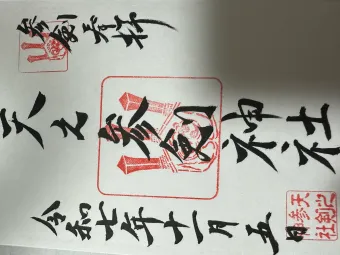 参剣奉拝
天之参剣神社
令和七年十一月五日
天之参剣神社